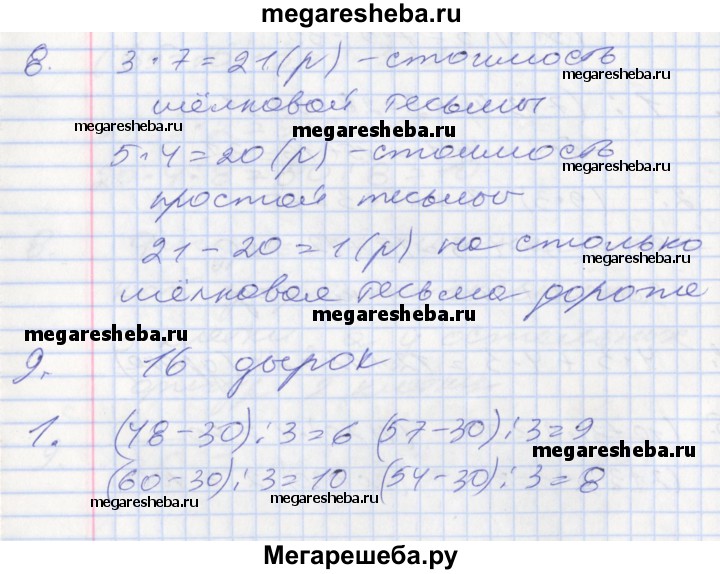 megaresheba.ru
8. 3 · 7 = 21 (р) – стоимость
megaresheba.ru
шёлковой тесьмы
megaresheba.ru
megaresheba.ru
5 · 4 = 20 (р) – стоимость
megaresheba.ru
простой тесьмы
21 – 20 = 1 (р) на столько
megaresheba.ru
шёлковая тесьма дороже
megaresheba.ru
megaresheba.ru
9. 16 дырок
1. (48 – 30) : 3 = 6 (57 – 30) : 3 = 9
megaresheba.ru
(60 – 30) : 3 = 10 (54 – 30) : 3 = 8
megaresheba.ru
megaresheba.ru
Мегарешеба.ру